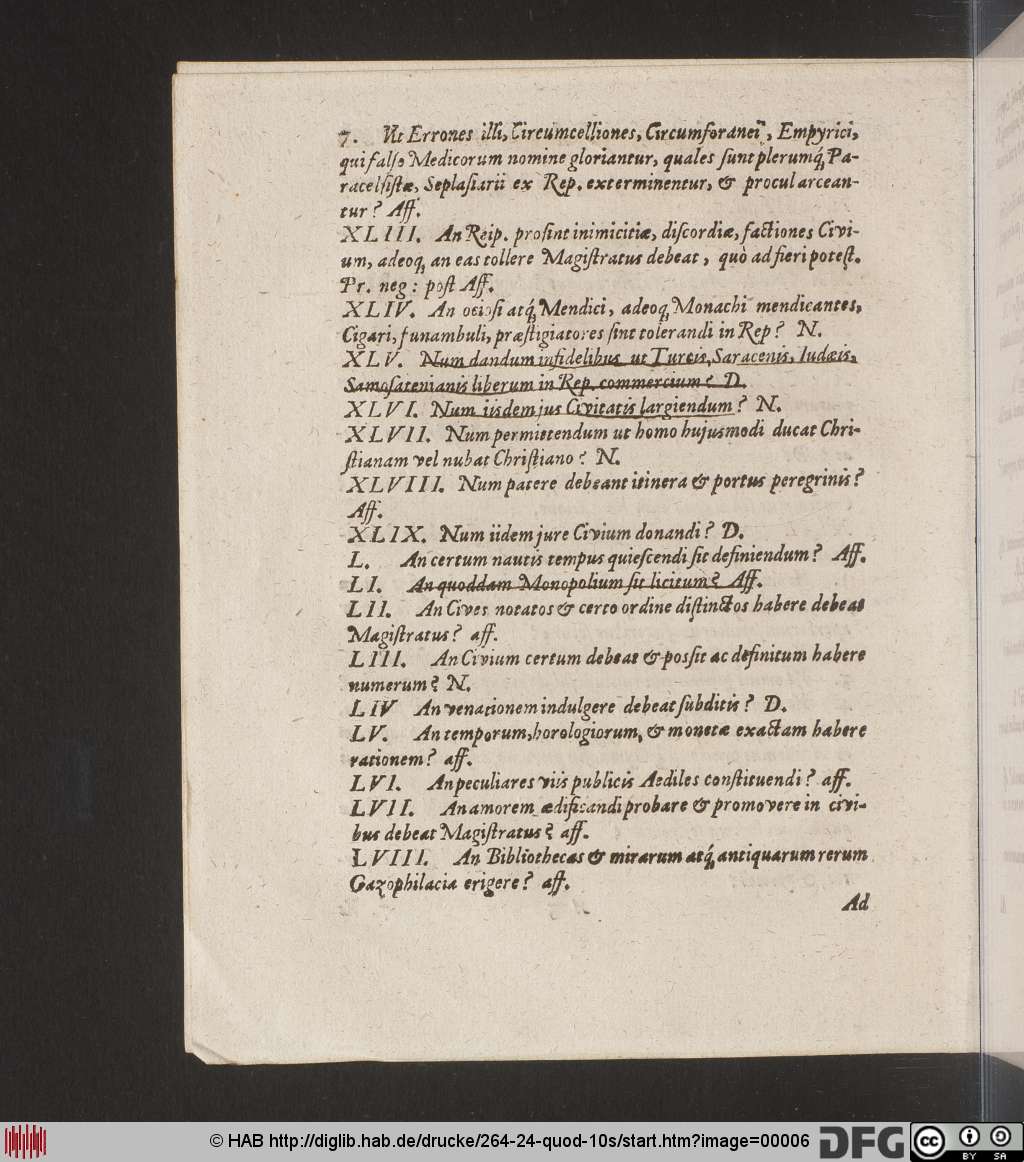 7. Ut Errones illi, Circumcelliones, Circumforanei, Empyrici,
qui falso Medicorum nomine gloriantur, quales sunt plerumq́; Pa-
racelsistæ, Seplasiarii ex Rep. exterminentur, & procul arcean-
tur? Aff.
XLIII. An Reip. prosint inimicitiæ, discordiæ, factiones Civi-
um, adeoq; an eas tollere Magistratus debeat, quò ad fieri potest.
Pr. neg: post Aff.
XLIV. An ociosi atq́; Mendici, adeoq; Monachi mendicantes,
Cigari, funambuli, præstigiatores sint tolerandi in Rep? N.
XLV. Num dandum infidelibus ut Turcis, Saracenis, Iudæis,
Samosatenianis liberum in Rep. commercium? D.
XLVI. Num iisdem jus Civitatis largiendum? N.
XLVII. Num permittendum ut homo hujusmodi ducat Chri-
stianam vel nubat Christiano? N.
XLVIII. Num patere debeant itinera & portus peregrinis?
Aff.
XLIX. Num iidem jure Civium donandi? D.
L. An certum nautis tempus quiescendi sit definiendum? Aff.
LI. An quoddam Monopolium sit licitum? Aff.
LII. An Cives notatos & certo ordine distinctos habere debeat
Magistratus? aff.
LIII. An Civium certum debeat & possit ac definitum habere
numerum? N.
LIV An venationem indulgere debeat subditis? D.
LV. An temporum, horologiorum, & monetæ exactam habere
rationem? aff.
LVI. An peculiares viis publicis Aediles constituendi? aff.
LVII. An amorem ædificandi probare & promovere in civi-
bus debeat Magistratus? aff.
LVIII. An Bibliothecas & mirarum atq́; antiquarum rerum
Gazophilacia erigere? aff.
Ad
© HAB http://diglib.hab.de/drucke/264-24-quod-10s/start.htm?image=00006
DFG
cc BY SA